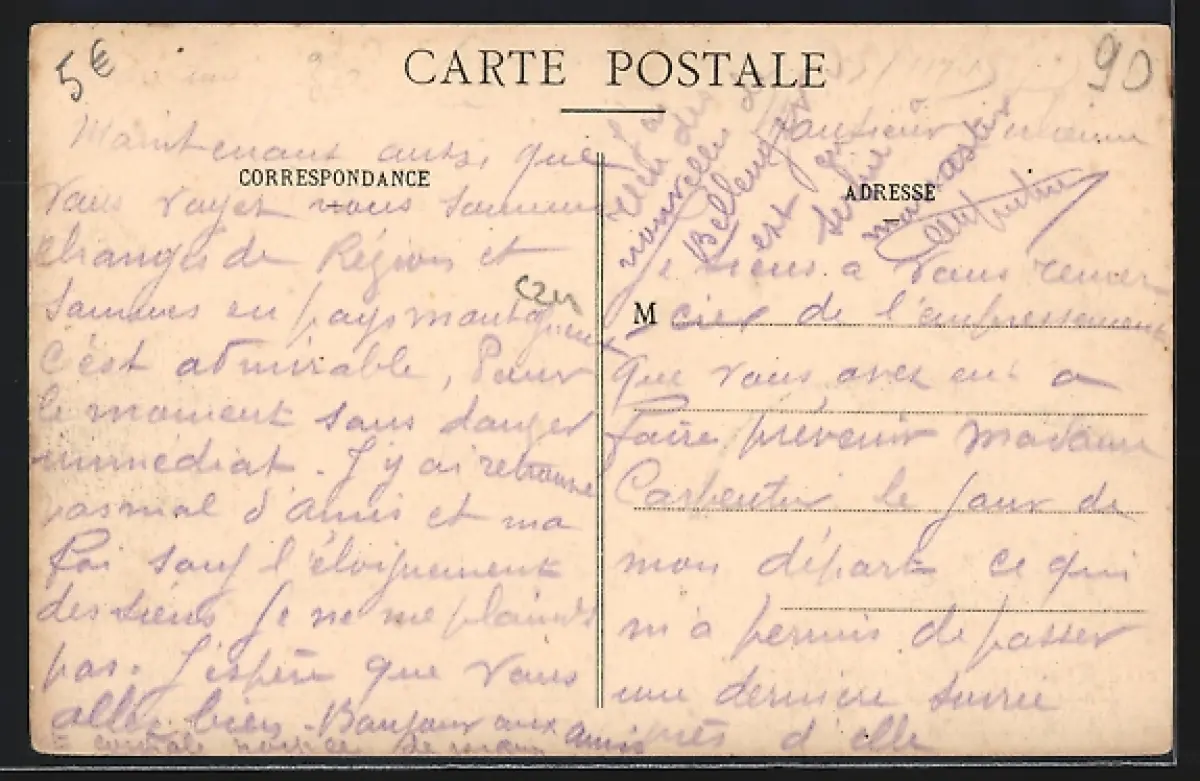 5€
CARTE POSTALE
90
CORRESPONDANCE
ADRESSE
M
Monsieur
Je tiens a vous remer
cier de l'empressement
que vous avez eut a
faire prévenir madame
Carpentier le jour de
mon départ ce qui
m'a permis de passer
une dernière soirée
près d'elle
Maintenant aussi que
vous voyez nous sommes
changés de Région et
sommes en pays montagneux
C'est admirable, Pour
le moment sans danger
immédiat. J'y ai retrouvé
pas mal d'amis et ma
foi sauf l'éloignement
des siens je ne me plains
pas. J'espère que vous
allez bien. Bonjour aux amis
cordiale poignée de main
J'ai
nouvelle
Belleng
est
Carpentier